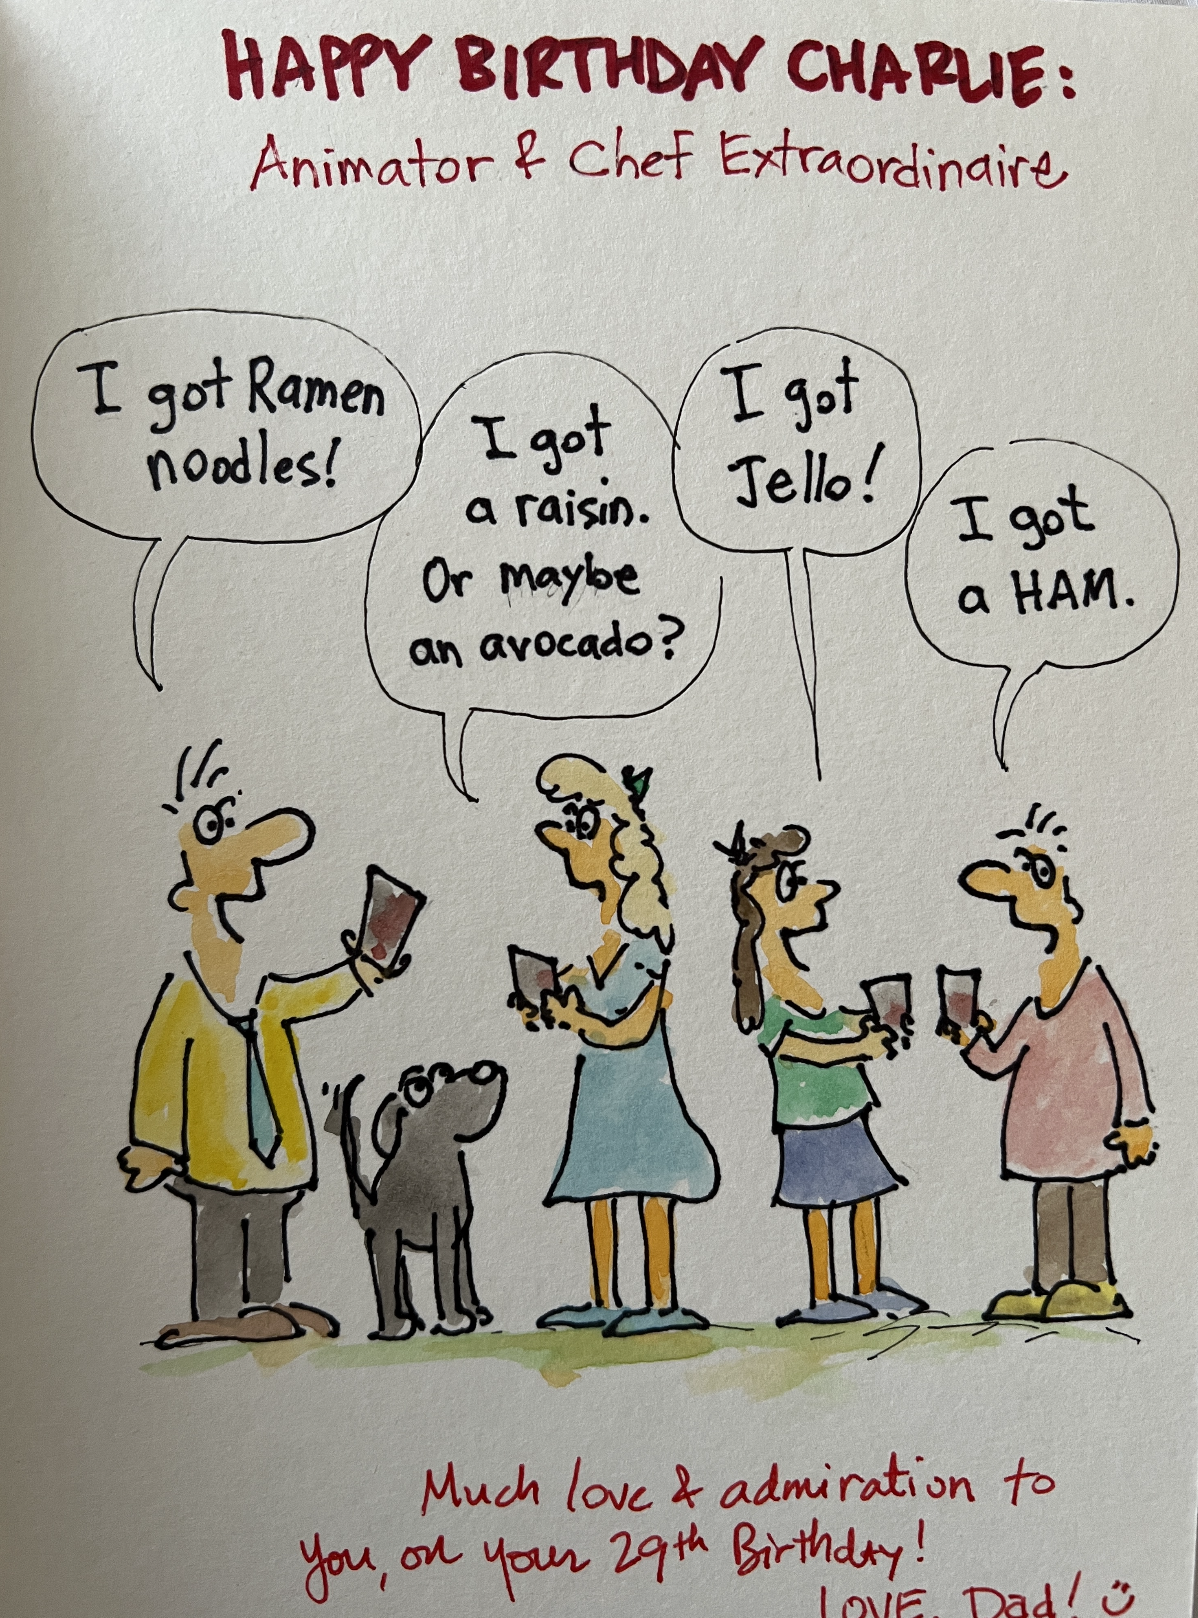 HAPPY BIRTHDAY CHARLIE:
Animator & Chef Extraordinaire
I got Ramen
noodles!
I got
a raisin.
Or maybe
an avocado?
I got
Jello!
I got
a HAM.
Much love & admiration to
you, on your 29th Birthday!
LOVE, Dad!